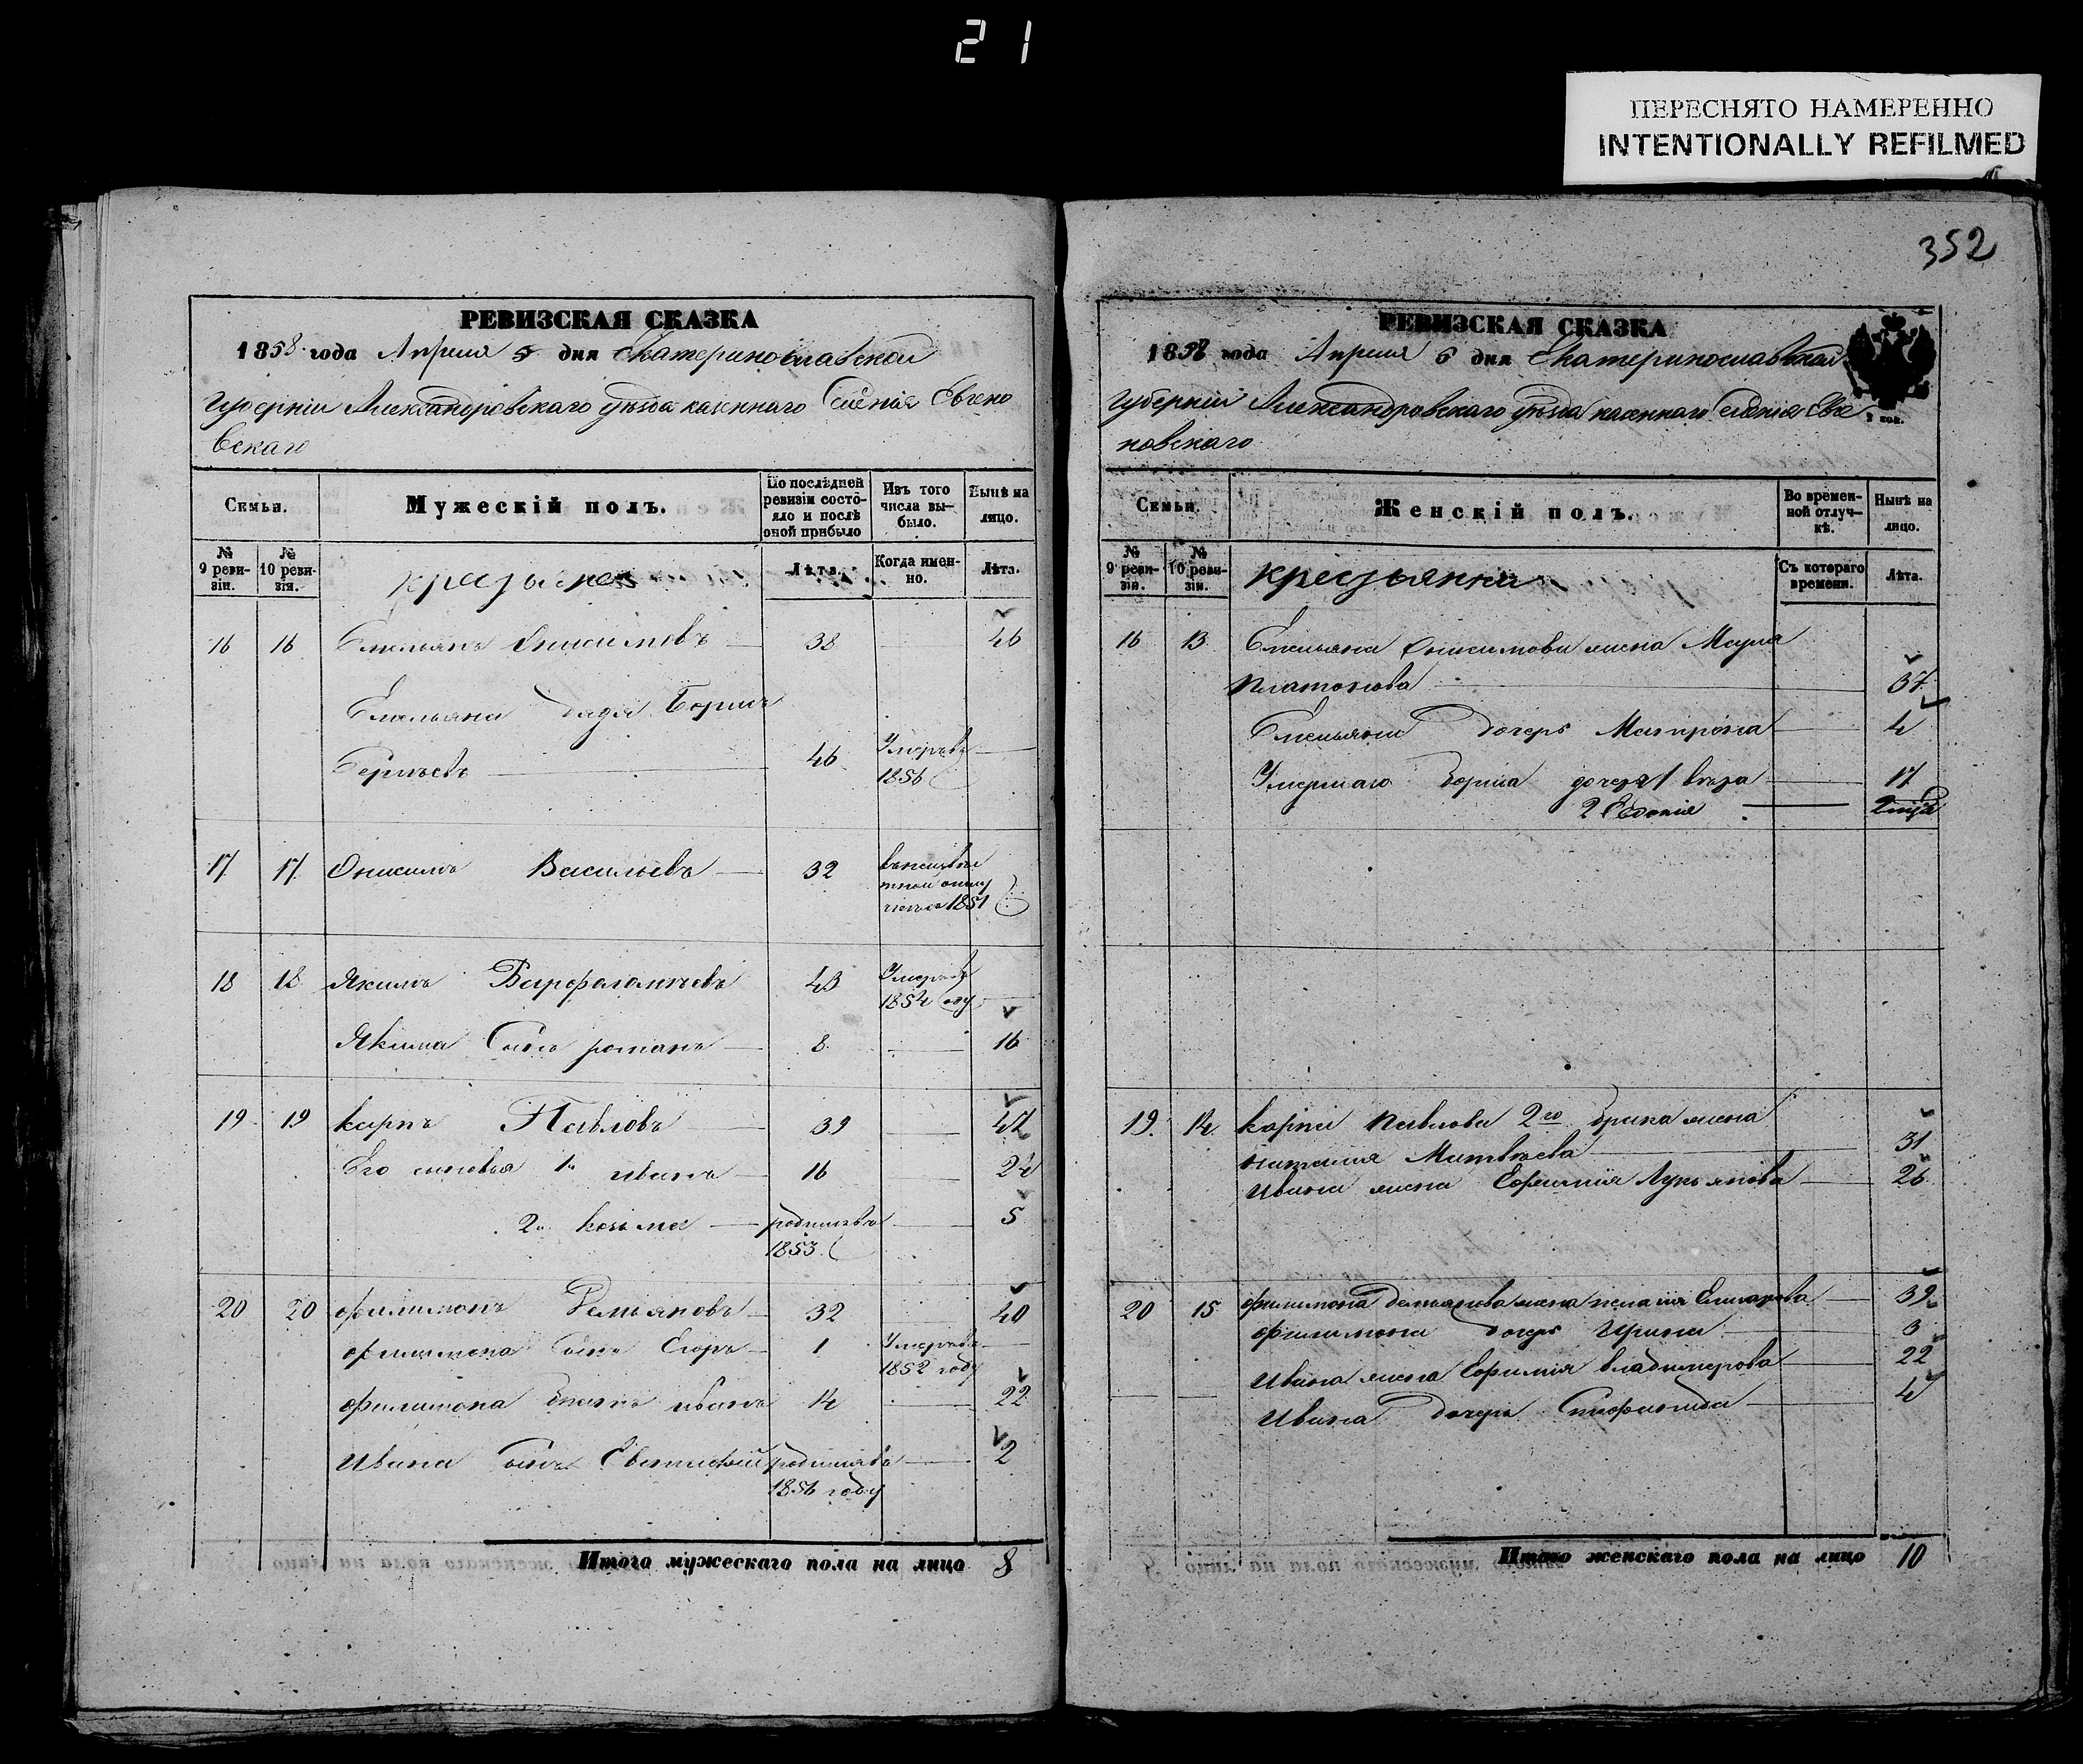 21
ПЕРЕСНЯТО НАМЕРЕННО
INTENTIONALLY REFILMED
352
РЕВИЗСКАЯ СКАЗКА
1858 года Апреля 5 дня Екатеринославской
Губерніи Александровскаго уѣзда казеннаго Селенія Евгено
вскаго
Семьи.
Мужескій полъ.
По послѣдней ревизіи состояло и послѣ оной прибыло
Изъ того числа выбыло.
Нынѣ на лицо.
№ 9 ревизіи.
№ 10 ревизія.
Лѣта.
Когда именно.
Лѣта.
16 16 Емельянъ Онисимовъ 38 46
Емельяна дядя Борисъ
46 Умеръ въ 1856
17 17 Онисимъ Васильевъ 32 1851
18 18 Якимъ Варфоломѣевъ 43 Умеръ въ 1854 году
Якима Сынъ романъ 8 16
19 19 карпъ Павловъ 39 47
Его сыновья 1й иванъ 16 24
2й козьма родился въ 1853 5
20 20 филимонъ Демьяновъ 32 40
филимона сынъ Егоръ 1 Умеръ въ 1852 году
филимона братъ иванъ 14 22
Ивана сынъ родился въ 1856 году 2
Итого мужескаго пола на лицо 8
РЕВИЗСКАЯ СКАЗКА
1858 года Апреля 5 дня Екатеринославской
Губерніи Александровскаго уѣзда казеннаго селенія Евге
новскаго
2 коп.
Семьи.
Женскій полъ.
Во временной отлучкѣ.
Нынѣ на лицо.
№ 9 ревизіи.
№ 10 ревизіи.
крестьянки
Съ котораго времени.
Лѣта.
16 13 Емельяна Онисимова жена Марья
платонова 37
Емельяна дочерь Матрона 4
Умершаго бориса дочеря 1 17
2
19 14 карпа павлова 2го брака жена
наталия Матвѣева 31
ивана жена Ефимия Лукьянова 26
20 15 филимона демьянова жена пелагия 39
филимона дочерь Ирина 3
Ивана жена Ефимия владимерова 22
Ивана дочерь 4
Итого женскаго пола на лицо 10